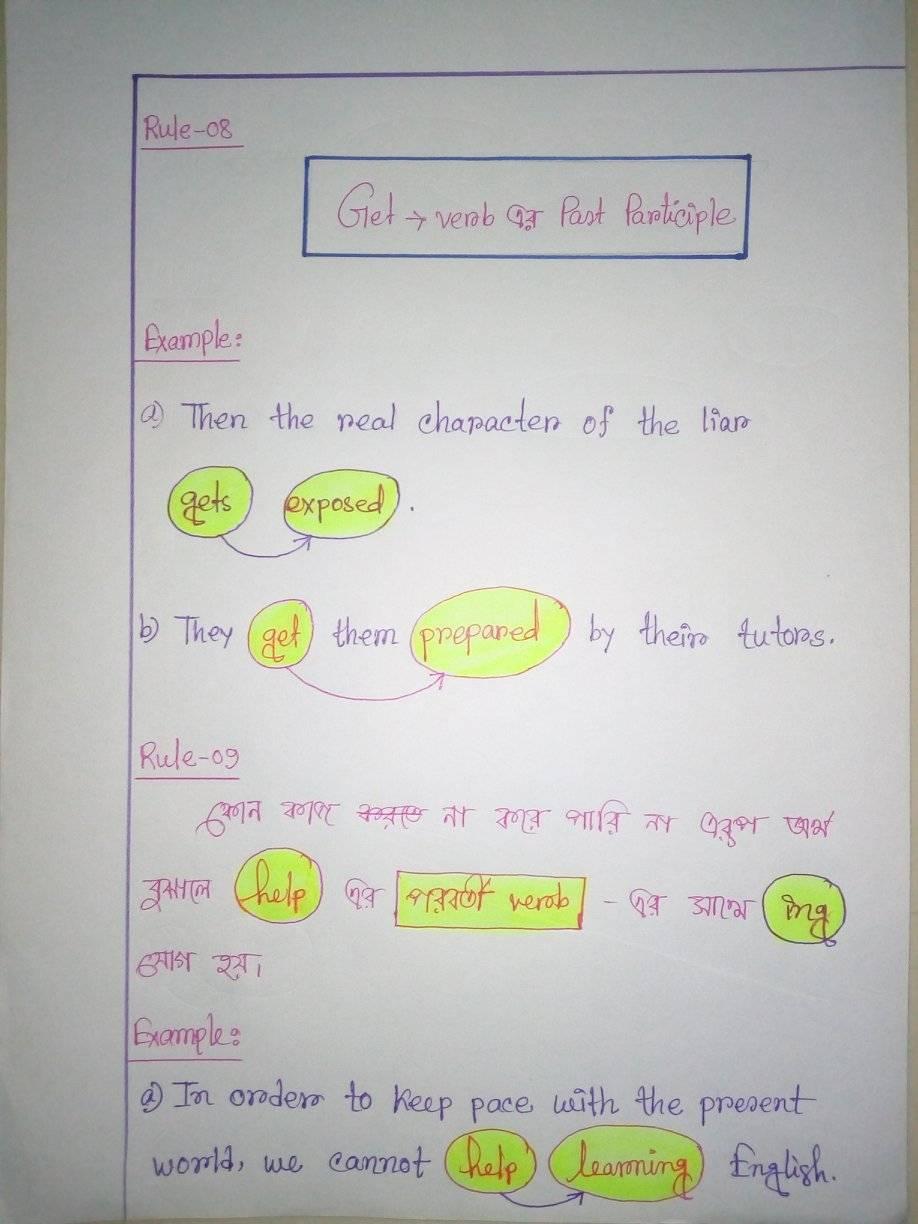 Rule-08
Get → verb এর Past Participle
Example:
a) Then the real character of the liar
gets exposed.
b) They get them prepared by their tutors.
Rule-09
কোন কাজ করতে না করে পারি না এরূপ অর্থ
বুঝালে help এর পরবর্তী verb - এর সাথে ing
যোগ হয়।
Example:
a) In order to keep pace with the present
world, we cannot help learning English.